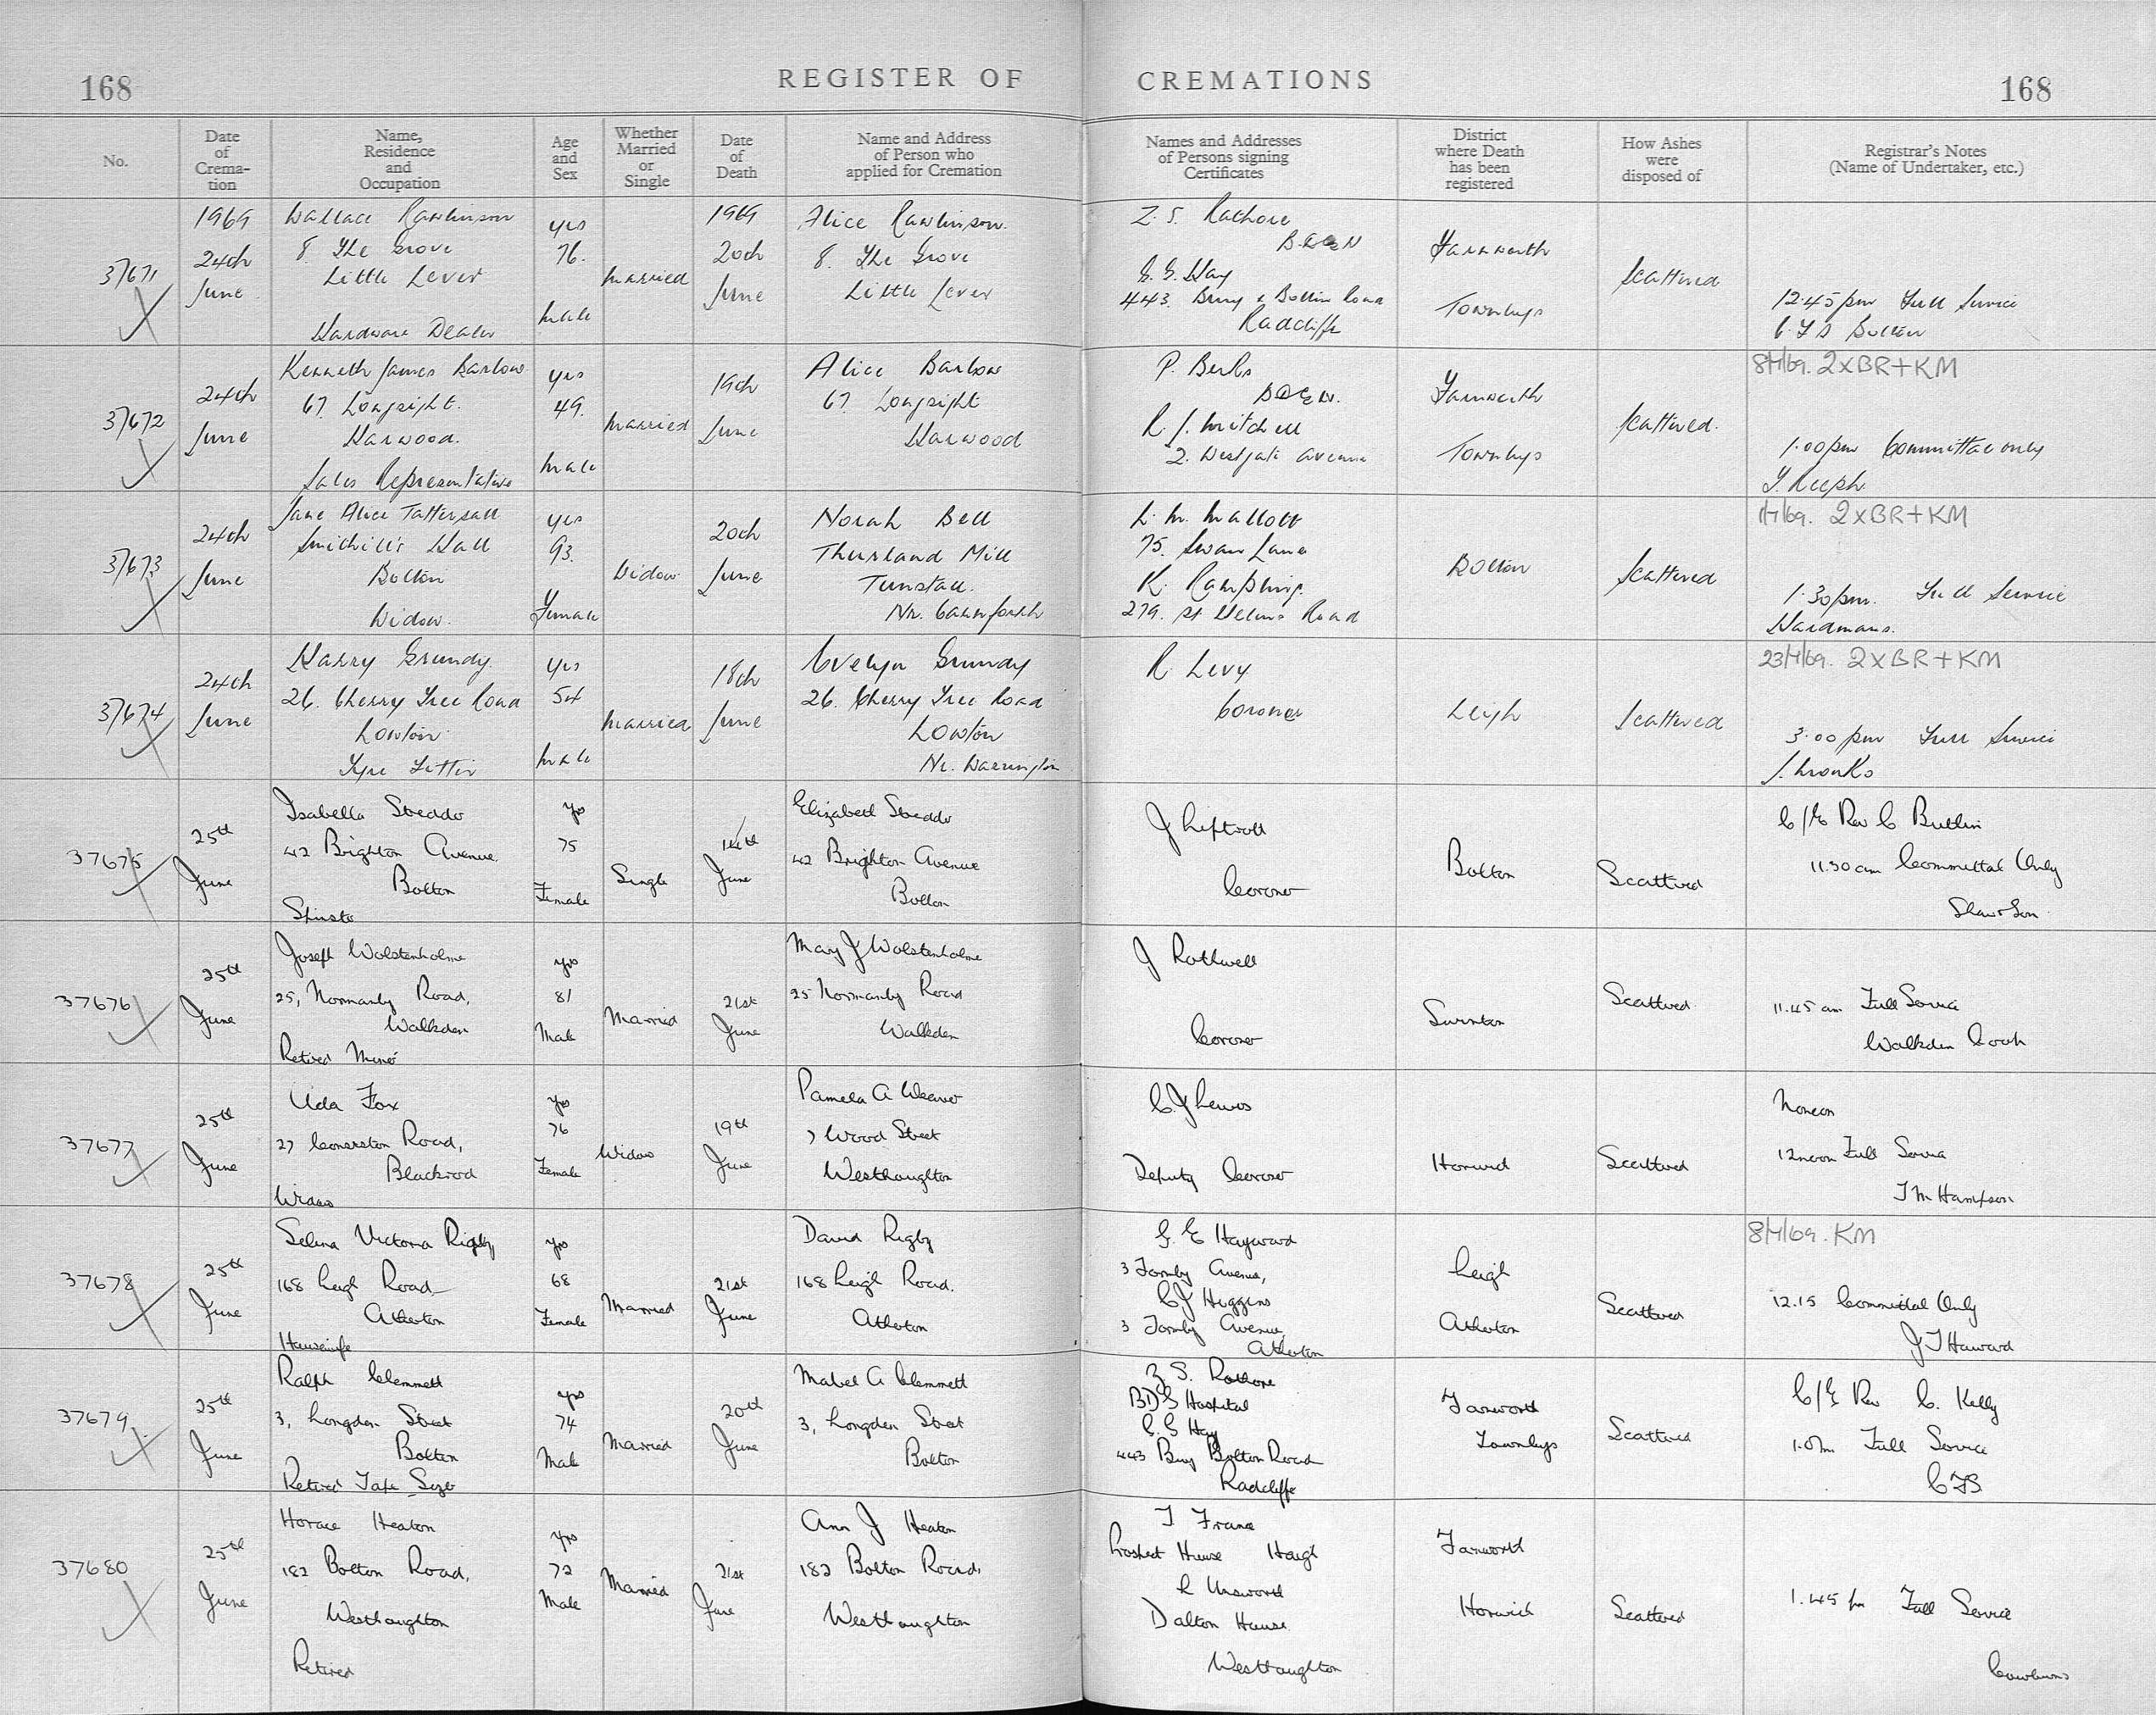 168
REGISTER OF CREMATIONS
168
No.
Date of Crema- tion
Name, Residence and Occupation
Age and Sex
Whether Married or Single
Date of Death
Name and Address of Person who applied for Cremation
Names and Addresses of Persons signing Certificates
District where Death has been registered
How Ashes were disposed of
Registrar's Notes (Name of Undertaker, etc.)
37671
1969
24th
June
Wallace Rawlinson
8 The Grove
Little Lever
Hardware Dealer
yrs
76.
Male
Married
1969
20th
June
Alice Rawlinson.
8. The Grove
Little Lever
Z. S. Rathore
G. G. Hay
443. Bury & Bolton Road
Radcliffe
Farnworth
Townleys
Scattered
12.45pm Full Service
C F S Bolton
37672
24th
June
Kenneth James Barlow
67 Longsight.
Harwood.
Sales Representative
yrs
49.
Male
Married
19th
June
Alice Barlow
67 Longsight
Harwood
P. Berks
B D G H.
R. J. Mitchell
2. Westgate Avenue
Farnworth
Townleys
Scattered.
8/7/69. 2xBR+KM
1.00pm Committal only
37673
24th
June
Jane Alice Tattersall
Smithill's Hall
Bolton
Widow.
yrs
93.
Female
Widow
20th
June
Norah Bell
Thursland Mill
Tunstall.
Nr. Carnforth
L. M. Mallott
75. Swan Lane
K. Rampling.
279. St Helens Road
Bolton
Scattered
1/7/69. 2xBR+KM
1.30pm. Full Service
Hardmans.
37674
24th
June
Harry Grundy.
26. Cherry Tree Road
Lowton
Tyre Fitter
yrs
54
Male
Married
18th
June
Evelyn Grundy
26. Cherry Tree Road
Lowton
Nr. Warrington
R Levy
Coroner
Leigh
Scattered
23/7/69. 2xBR+KM
3.00pm Full Service
37675
25th
June
Isabella Seddo
42 Brighton Avenue
Bolton
Spinster
yrs
75
Female
Single
14th
June
Elizabeth Seddo
42 Brighton Avenue
Bolton
J Leftroll
Coroner
Bolton
Scattered
C/E Rev C Butlin
11.30 am Committal Only
Shaw & Son
37676
25th
June
Joseph Wolstenholme
25, Normanby Road,
Walkden
Retired Miner
yrs
81
Male
Married
21st
June
May J Wolstenholme
25 Normanby Road
Walkden
J Rothwell
Coroner
Swinton
Scattered
11.45 am Full Service
Walkden Coop
37677
25th
June
Uda Fox
27 Coniserston Road,
Blackrod
Widow
yrs
76
Female
Widow
19th
June
Pamela A Weaver
7 Wood Street
Westhoughton
C. J Lewis
Deputy Coroner
Horwich
Scattered
Noncon
12 noon Full Service
T M Hampson
37678
25th
June
Selina Victoria Rigby
168 Leigh Road
Atherton
Housewife
yrs
68
Female
Married
21st
June
David Rigby
168 Leigh Road.
Atherton
G. E Hayward
3 Formby Avenue,
C J Higgins
3 Formby Avenue,
Atherton
Leigh
Atherton
Scattered
8/7/69. KM
12.15 Committal Only
J T Howard
37679.
25th
June
Ralph Clemmett
3, Longden Street
Bolton
Retired Tape Sizer
yrs
74
Male
Married
20th
June
Mabel A Clemmett
3, Longden Street
Bolton
Z S. Rathore
BDG Hospital
G. G Hay
443 Bury Bolton Road
Radcliffe
Farnworth
Townleys
Scattered
C/E Rev C. Kelly
1.0pm Full Service
C F S
37680
25th
June
Horace Heaton
182 Bolton Road,
Westhoughton
Retired
yrs
72
Male
Married
21st
June
Ann J Heaton
182 Bolton Road,
Westhoughton
T France
Prospect House Haigh
R Unsworth
Dalton House
Westhoughton
Farnworth
Horwich
Scattered
1.45 pm Full Service